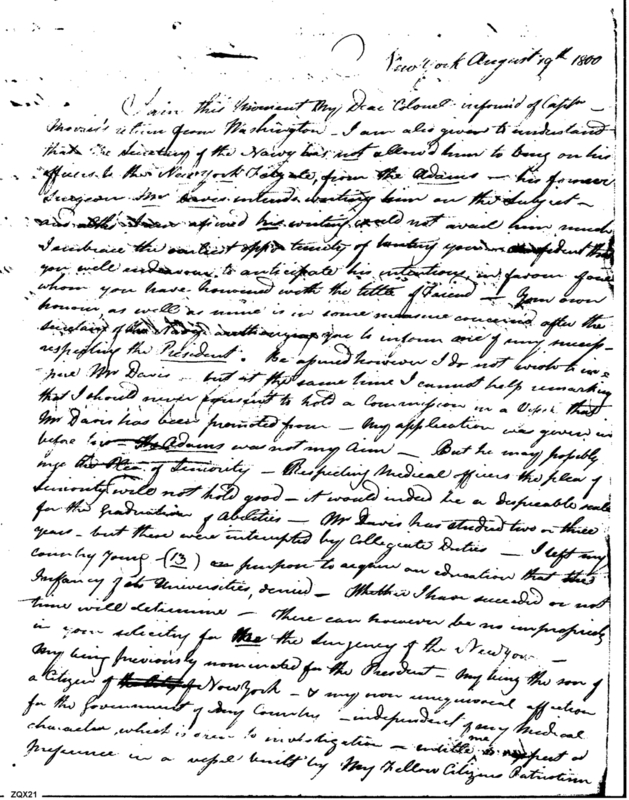 New York August 19th 1800
I am this Moment My Dear Colonel informd of Captn
Morris's return from Washington - I am also given to understand
that the Secretary of the Navy has not allow'd him to bring on his
officers to the New York Frigate, from the Adams - his former
Surgeon Mr Davis intends writing him on the Subject -
his writing would not avail him much
I embrace the earliest opportunity of
you will endeavour to anticipate his intentions in favour of one
whom you have honoured with the title of Friend - Your own
honour, as well as mine is in some measure concerned after the
Secretary of the Navy's authorizing you to inform me of my
respecting the President. Be assured however I do not wish to
Mr Davis - but at the same time I cannot help remarking
that I should never consent to hold a Commission in a Vessel that
Mr Davis has been promoted from - My application was given in
before his - the Adams was not my aim - But he may possibly
urge the Plea of Seniority - Respecting Medical officers the plea of
Seniority will not hold good - it would indeed be a despicable scale
for the Graduation of Abilities - Mr Davis has studied two or three
years - but these were interrupted by Collegiate Duties - I left my
country young (13) on purpose to acquire an education that the
Infancy of its Universities, denied - Whether I have succeeded or not
time will determine - There can however be no impropriety
in your selecting for the Surgency of the New York -
My being previously nominated for the President - My being the son of
a Citizen of New York - & my own unequivocal affection
for the Government of my Country - independent of my Medical
character, which is open to investigation - entitle me to
Preference in a vessel built by My Fellow Citizens Patriotism
ZQX21